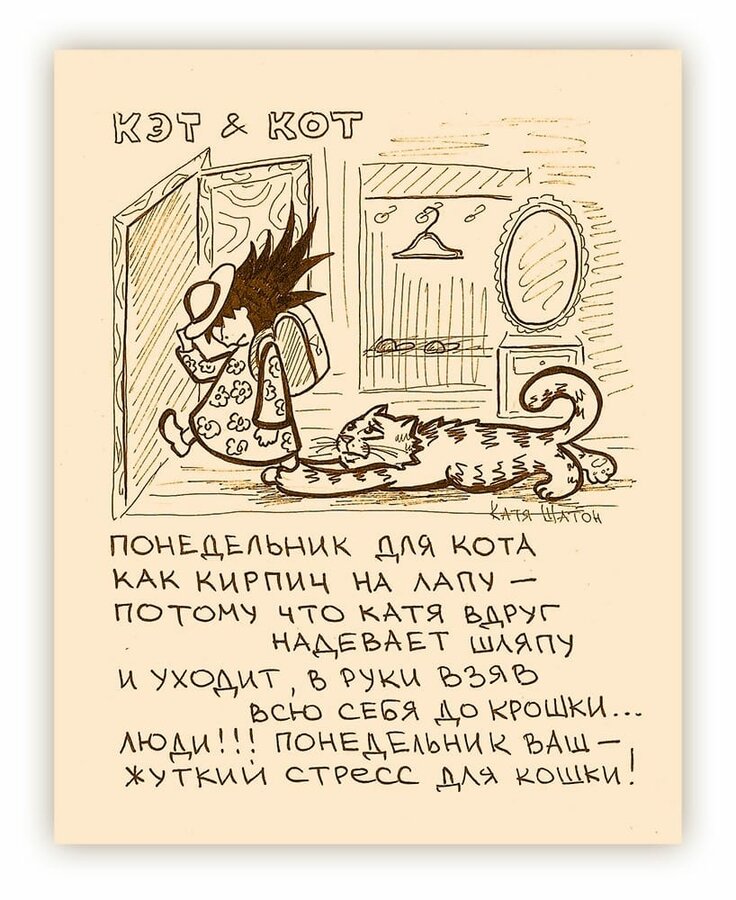 КЭТ & КОТ
КАТЯ ШАТОН
ПОНЕДЕЛЬНИК ДЛЯ КОТА
КАК КИРПИЧ НА ЛАПУ —
ПОТОМУ ЧТО КАТЯ ВДРУГ
НАДЕВАЕТ ШЛЯПУ
И УХОДИТ, В РУКИ ВЗЯВ
ВСЮ СЕБЯ ДО КРОШКИ...
ЛЮДИ!!! ПОНЕДЕЛЬНИК ВАШ —
ЖУТКИЙ СТРЕСС ДЛЯ КОШКИ!